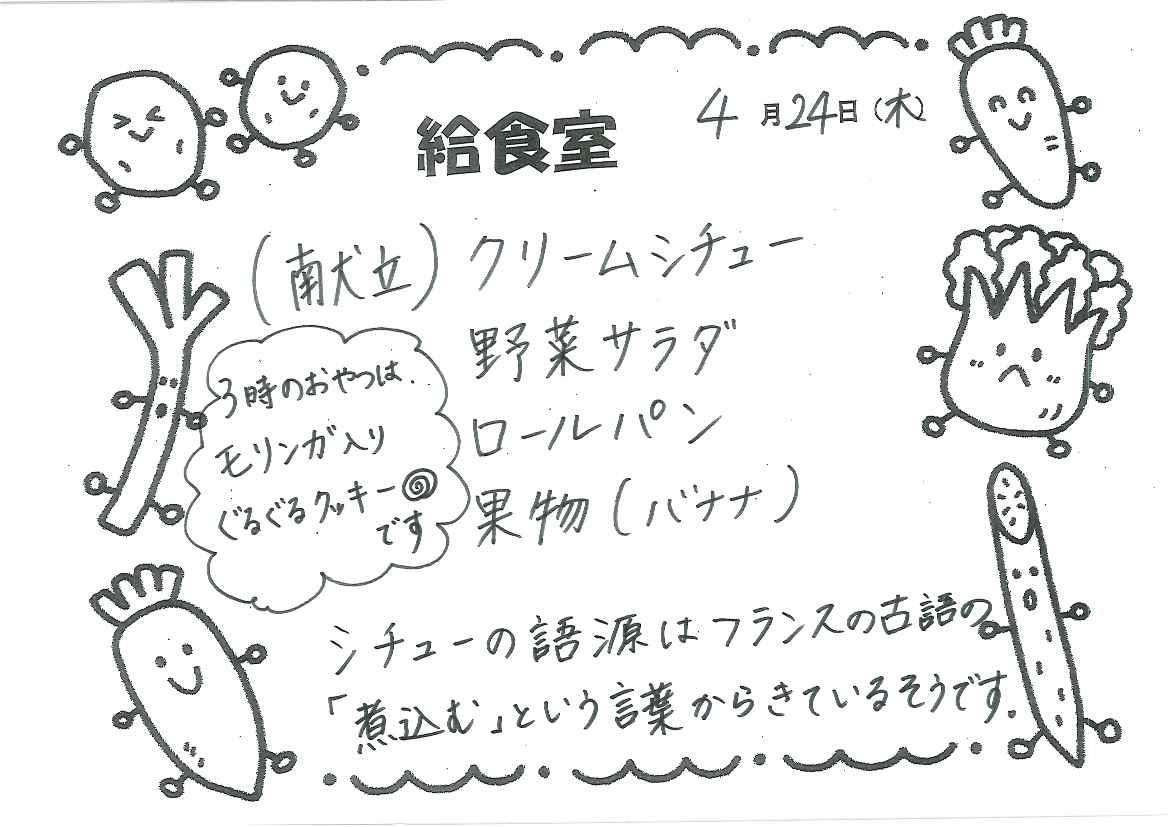 給食室
4月24日(木)
(献立) クリームシチュー
野菜サラダ
ロールパン
果物(バナナ)
3時のおやつは、
モリンガ入り
ぐるぐるクッキー
です
シチューの語源はフランスの古語の
「煮込む」という言葉からきているそうです。